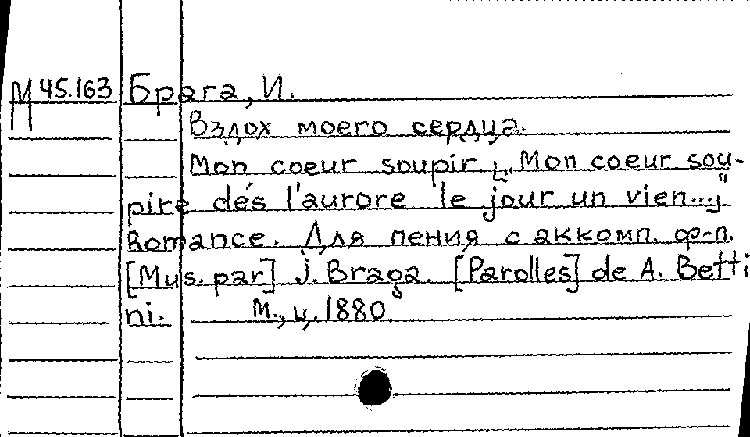 М 45.163 Брага, И.
Вздох моего сердца.
Mon coeur soupir [„Mon coeur sou-
pire dés l'aurore le jour un vien...“]
Romance. Для пения с аккомп. ф-п.
[Mus. par] J. Braga. [Parolles] de A. Betti
ni. М., ц. 1880